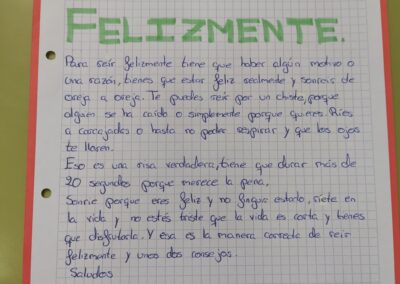 FELIZMENTE.
Para reír felizmente tiene que haber algún motivo o
una razón, tienes que estar feliz realmente y sonreir de
oreja a oreja. Te puedes reir por un chiste, porque
alguien se ha caído o simplemente porque quieres. Ríes
a carcajadas o hasta no poder respirar y que los ojos
te lloren.
Eso es una risa verdadera, tiene que durar más de
20 segundos porque merece la pena.
Sonrie porque eres feliz y no finguir estado, riete en
la vida y no estés triste que la vida es corta y tienes
que disfrutarla. Y esa es la manera correcta de reir
felizmente y unos dos consejos.
Saludos